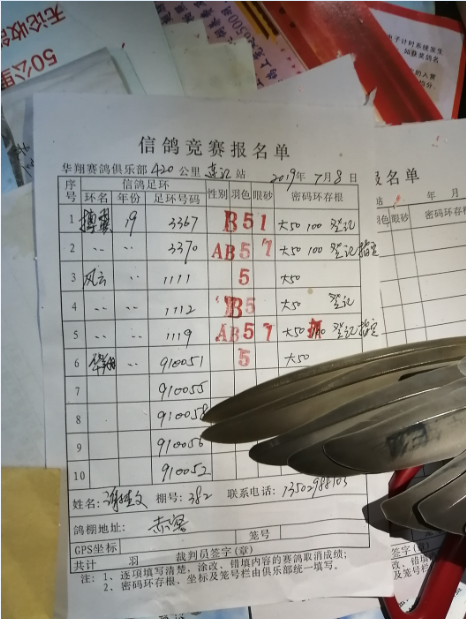 无论收
50公里
信鸽竞赛报名单
华翔赛鸽俱乐部 420 公里 站 2019年 7月8日
序号 信鸽足环 性别 羽色 眼砂 密码环存根
环名 年份 足环号码
1 19 3367 B 5 1 大50 100 登记
2 〃 〃 3370 AB 5 7 大50 100 登记指定
3 风云 〃 1111 5 大50
4 〃 〃 1112 B 5 大50 登记
5 〃 〃 1119 AB 5 7 大50 登记指定
6 〃 910051 5 大50
7 910055
8 910058
9 910056
10 910052
姓名: 棚号: 382 联系电话: 13502988105
鸽棚地址:
GPS坐标 笼号
共计 羽 裁判员签字(章)
注: 1、逐项填写清楚、涂改、错填内容的赛鸽取消成绩;
2、密码环存根、坐标及笼号栏由俱乐部统一填写。
报名单
年 月
羽色 眼砂 密码环存
签字(章)
改、错填
及笼号栏